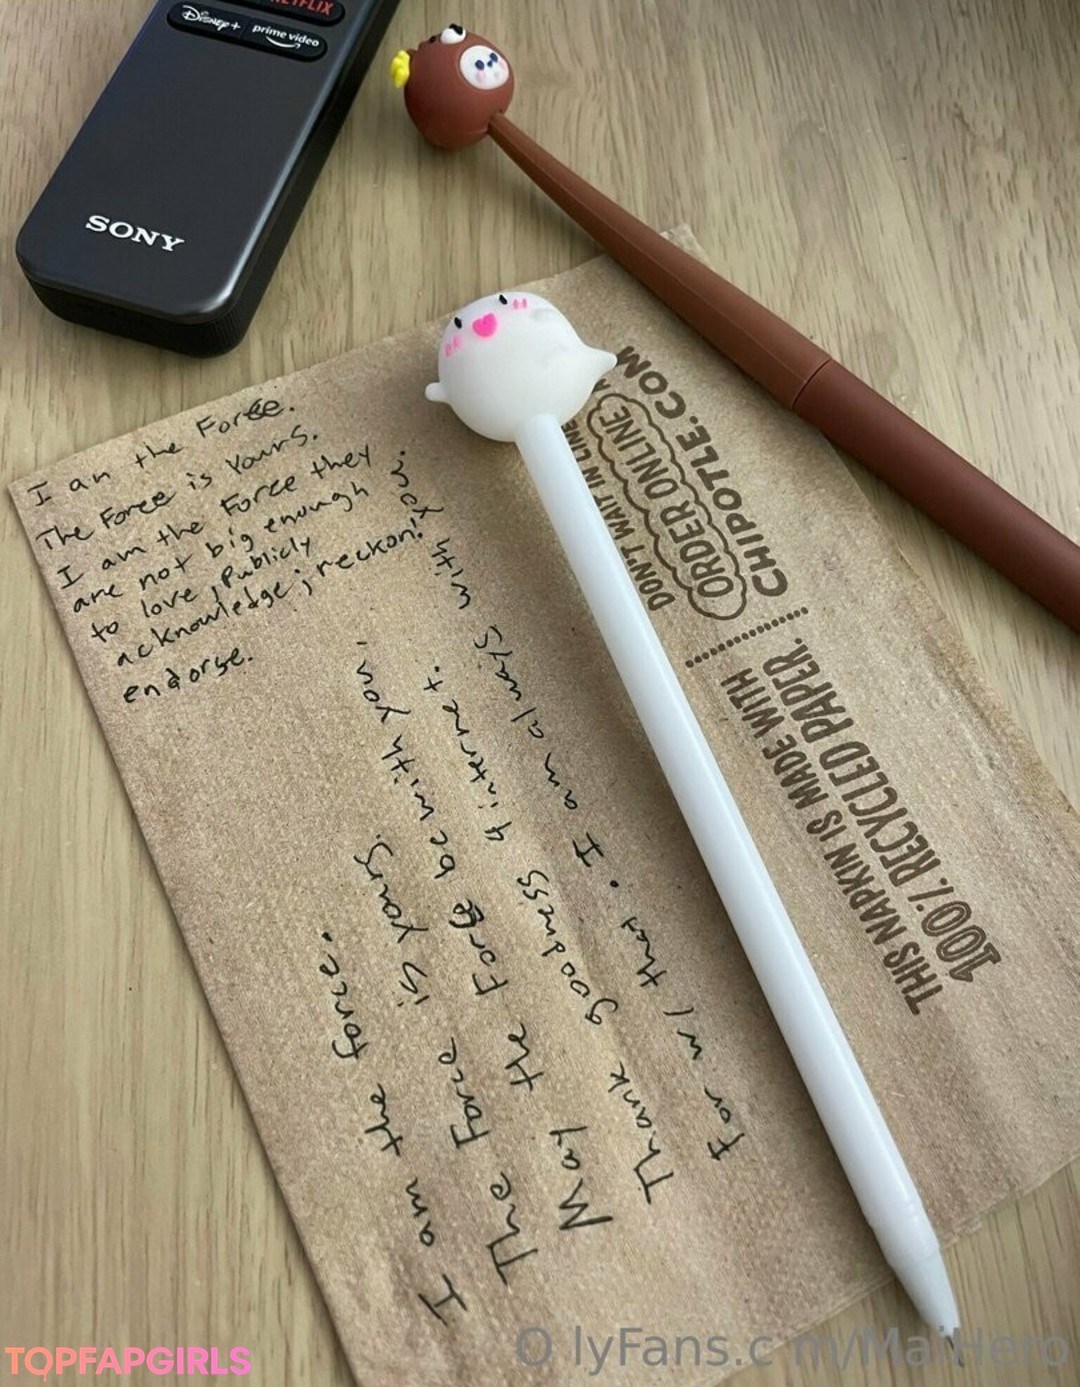 NETFLIX
Disney+
prime video
SONY
I am the Force.
The Force is Yours.
I am the Force they
are not big enough
to love, Publicly
acknowledge; reckon!
endorse.
I am the force.
The Force is yours.
May the Force be with you,
Thank goodness 4 internet.
For w/ that. I am always with you.
DON'T WAIT IN LINE
ORDER ONLINE
CHIPOTLE.COM
THIS NAPKIN IS MADE WITH
100% RECYCLED PAPER.
TOPFAPGIRLS
O lyFans.c m/MaiHero